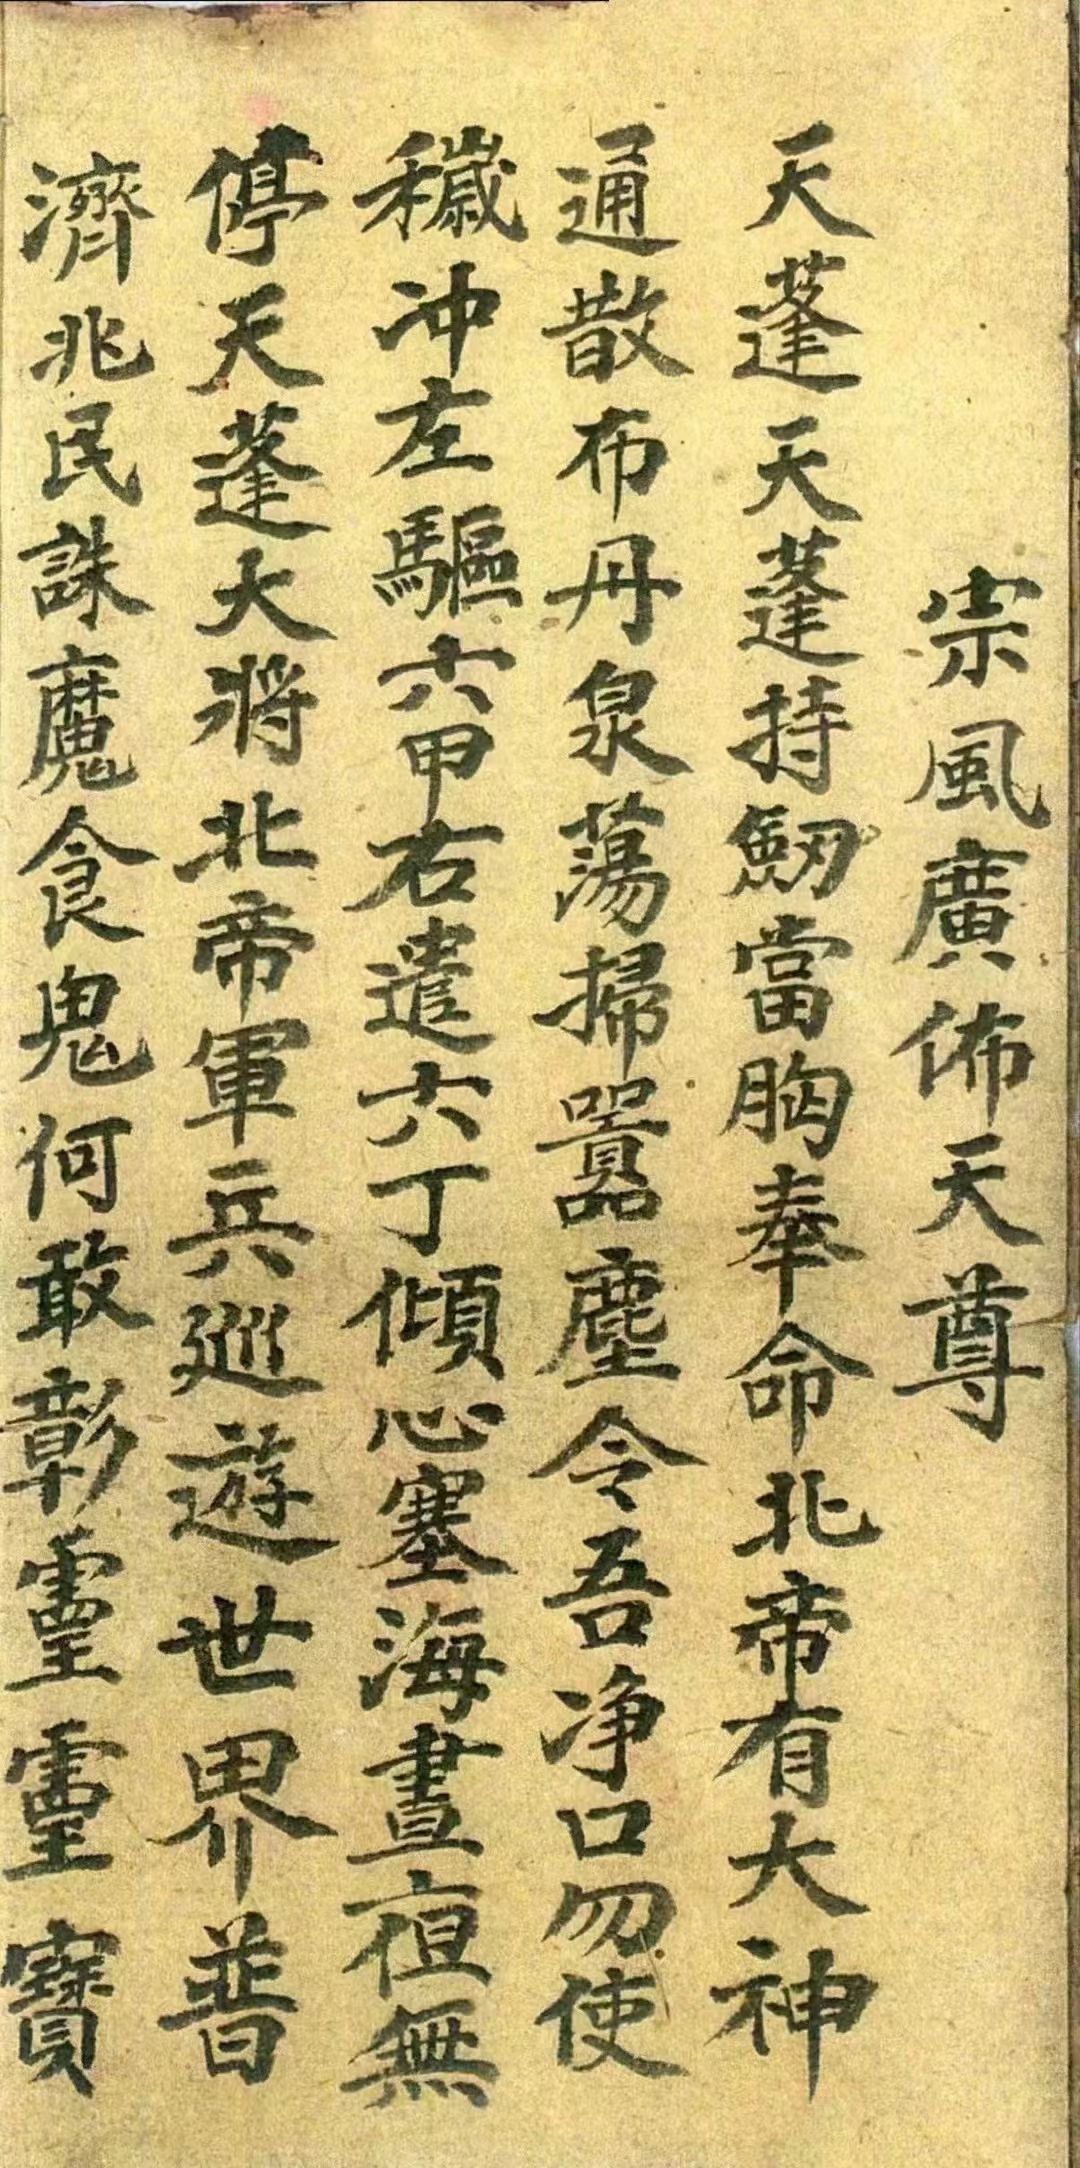 宗風廣佈天尊
天蓬天蓬持劒當胸奉命北帝有大神
通散布丹泉蕩掃囂塵令吾净口勿使
穢冲左驅六甲右遣六丁傾心塞海晝夜無
停天蓬大將北帝軍兵巡遊世界普
濟兆民誅魔食鬼何敢彰靈靈寶